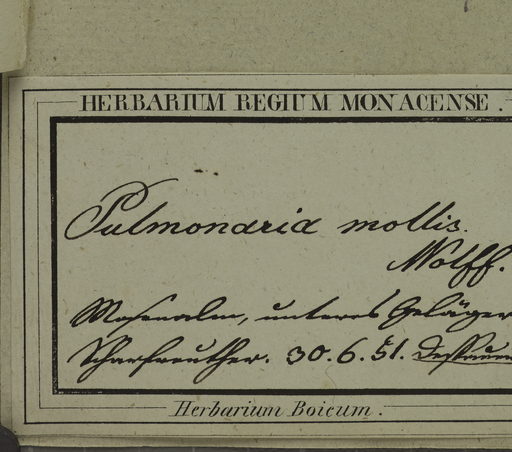 HERBARIUM REGIUM MONACENSE.
Pulmonaria mollis.
Wolff.
Mosenalm, unteres Geläger
Scharfreuther. 30.6.51.
Herbarium Boicum.